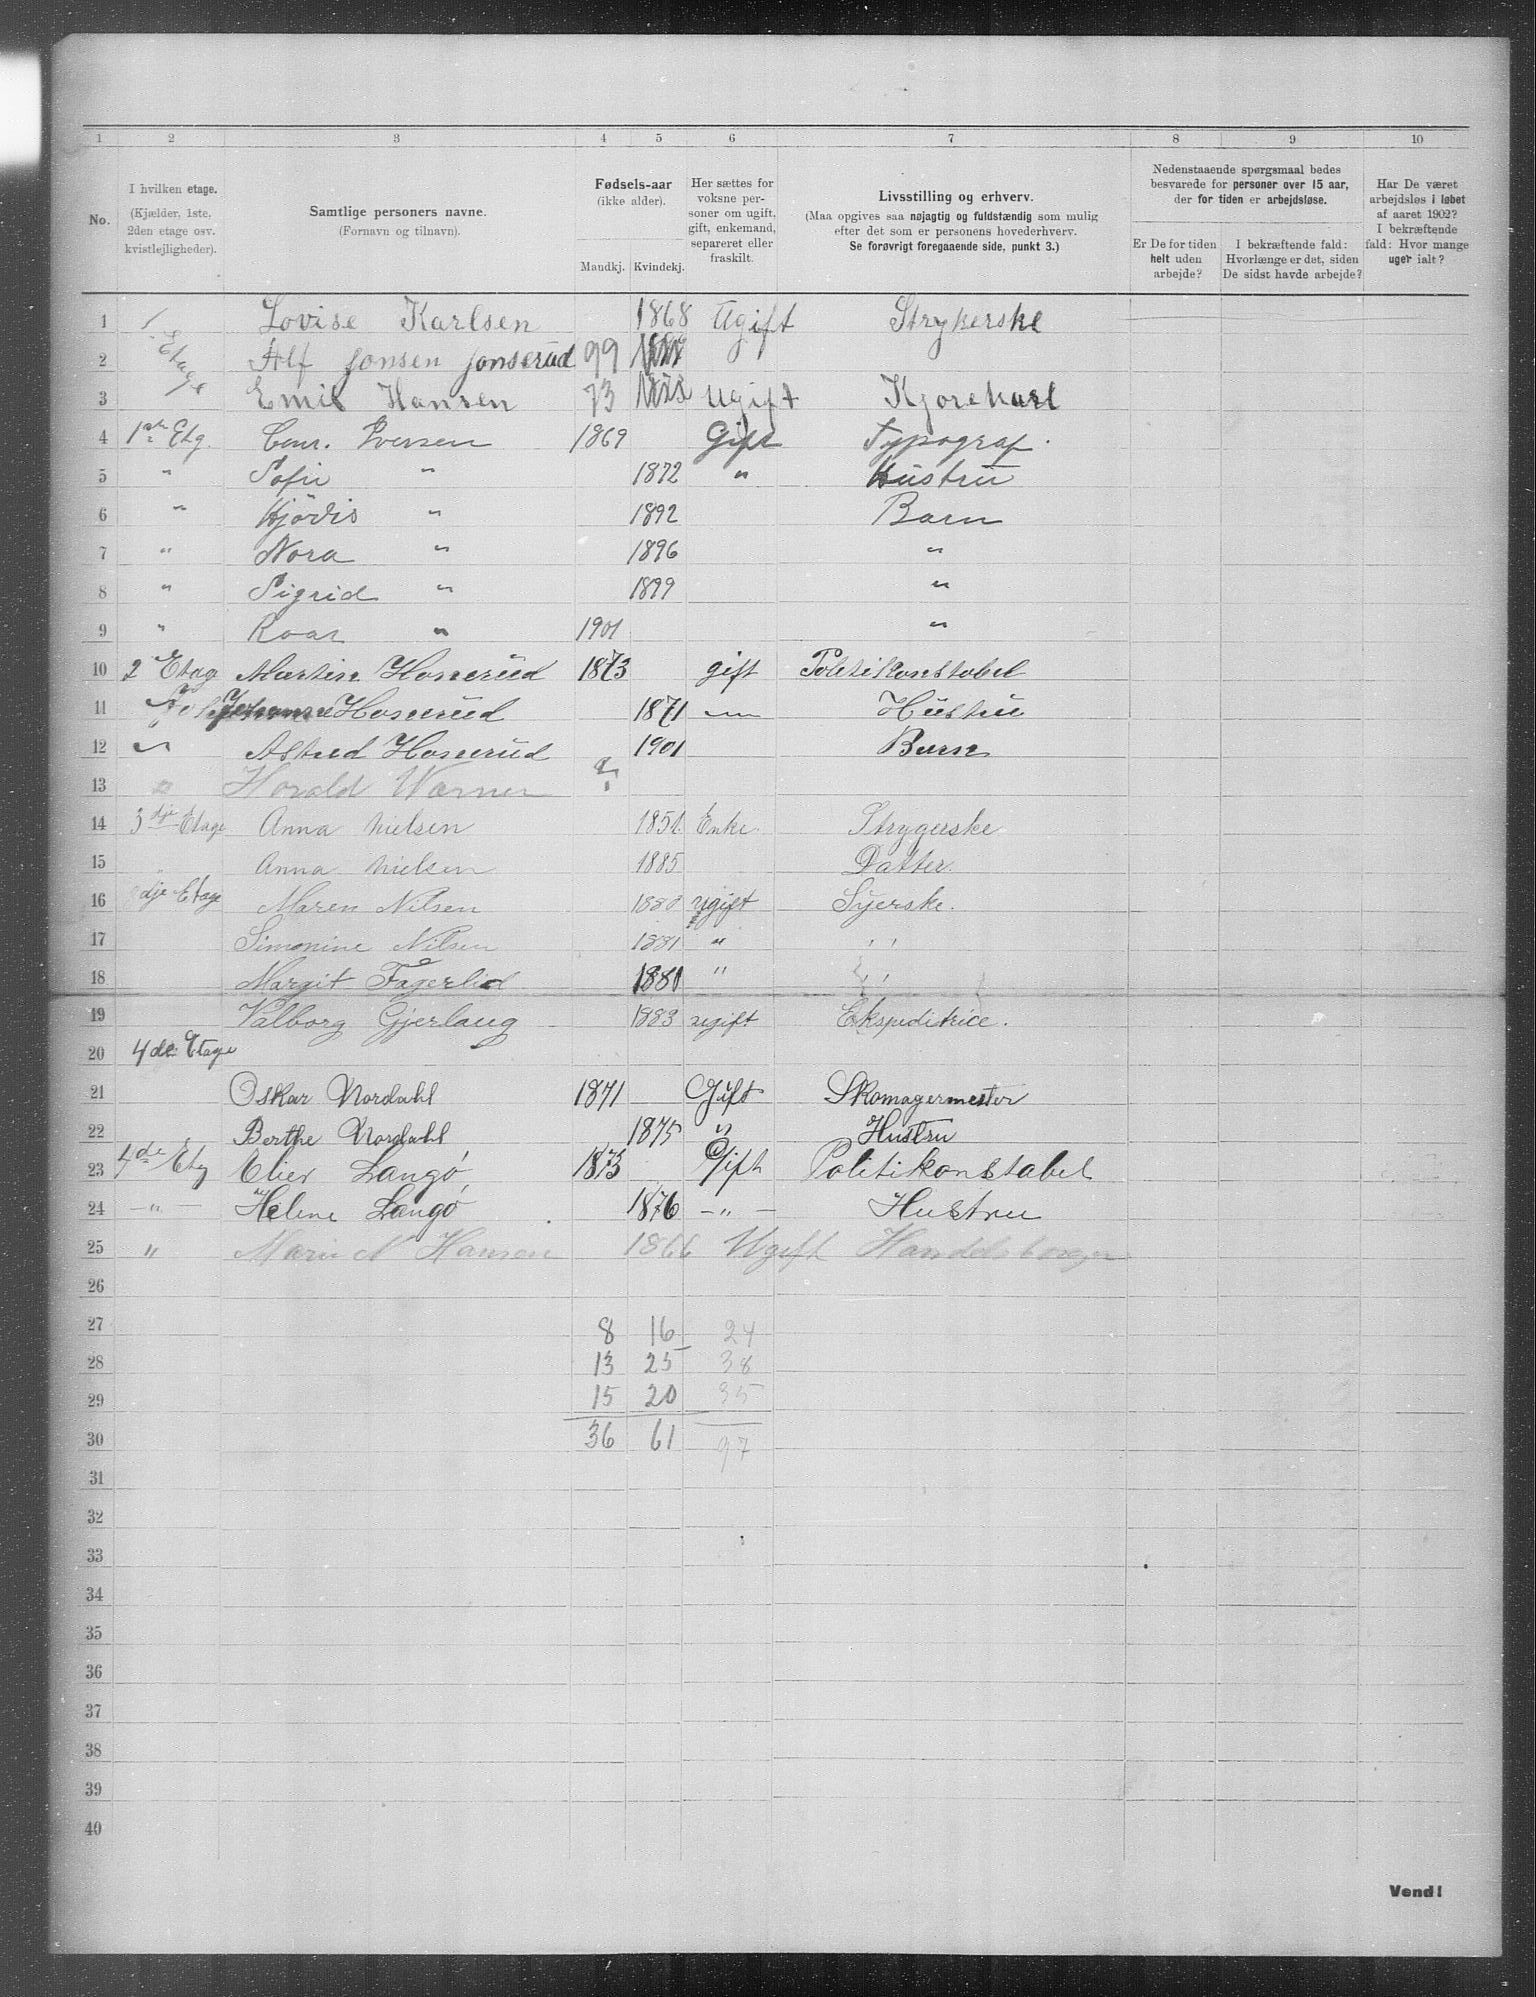 1 2 3 4 5 6 7 8 9 10
No. I hvilken etage. (Kjælder, 1ste, 2den etage osv. kvistlejligheder). Samtlige personers navne. (Fornavn og tilnavn). Fødsels-aar (ikke alder). Mandkj. Kvindekj. Her sættes for voksne personer om ugift, gift, enkemand, separeret eller fraskilt. Livsstilling og erhverv. (Maa opgives saa nøjagtig og fuldstændig som mulig efter det som er personens hovederhverv. Se forøvrigt foregaaende side, punkt 3.) Nedenstaaende spørgsmaal bedes besvarede for personer over 15 aar, der for tiden er arbejdsløse. Er De for tiden helt uden arbejde? I bekræftende fald: Hvorlænge er det, siden De sidst havde arbejde? Har De været arbejdsløs i løbet af aaret 1902? I bekræftende fald: Hvor mange uger ialt?
1 1. Etage Lovise Karlsen 1868 Ugift Strykerske
2 Alf Jonsen Jonserud 99
3 Emil Hansen 73 Ugift Kjørekarl
4 1ste Etg. Conr. Iversen 1869 Gift Typograf.
5 " Sofie " 1872 " Hustru
6 " Hjördis " 1892 Barn
7 " Nora " 1896 "
8 " Sigrid " 1899 "
9 " Roar " 1901 "
10 2 Etag Martin Honerud 1873 gift Politikonstabel
11 Honerud 1871 " Hustru
12 " Astrid Honerud 1901 Barn
13 " Harald Warner ?
14 3dje Etage Anna Nielsen 1851 Enke. Strygerske
15 " Anna Nielsen 1885 Datter.
16 3dje Etage Maren Nilsen 1880 ugift Syerske.
17 Simonine Nilsen 1881 " "
18 Margit Fagerlid 1880 " "
19 Valborg Gjerlaug 1883 ugift Ekspeditrice.
20 4de Etage
21 Oskar Nordahl 1871 Gift Skomagermester
22 Berthe Nordahl 1875 " Hustru
23 4de Etg Elier Langö, 1873 Gift Politikonstabel
24 — " — Helene Langö 1876 — " — Hustru
25 " Marie N Hansen 1866 Ugift Handelsborger
26
27 8 16 24
28 13 25 38
29 15 20 35
30 36 61 97
31
32
33
34
35
36
37
38
39
40
Vend!